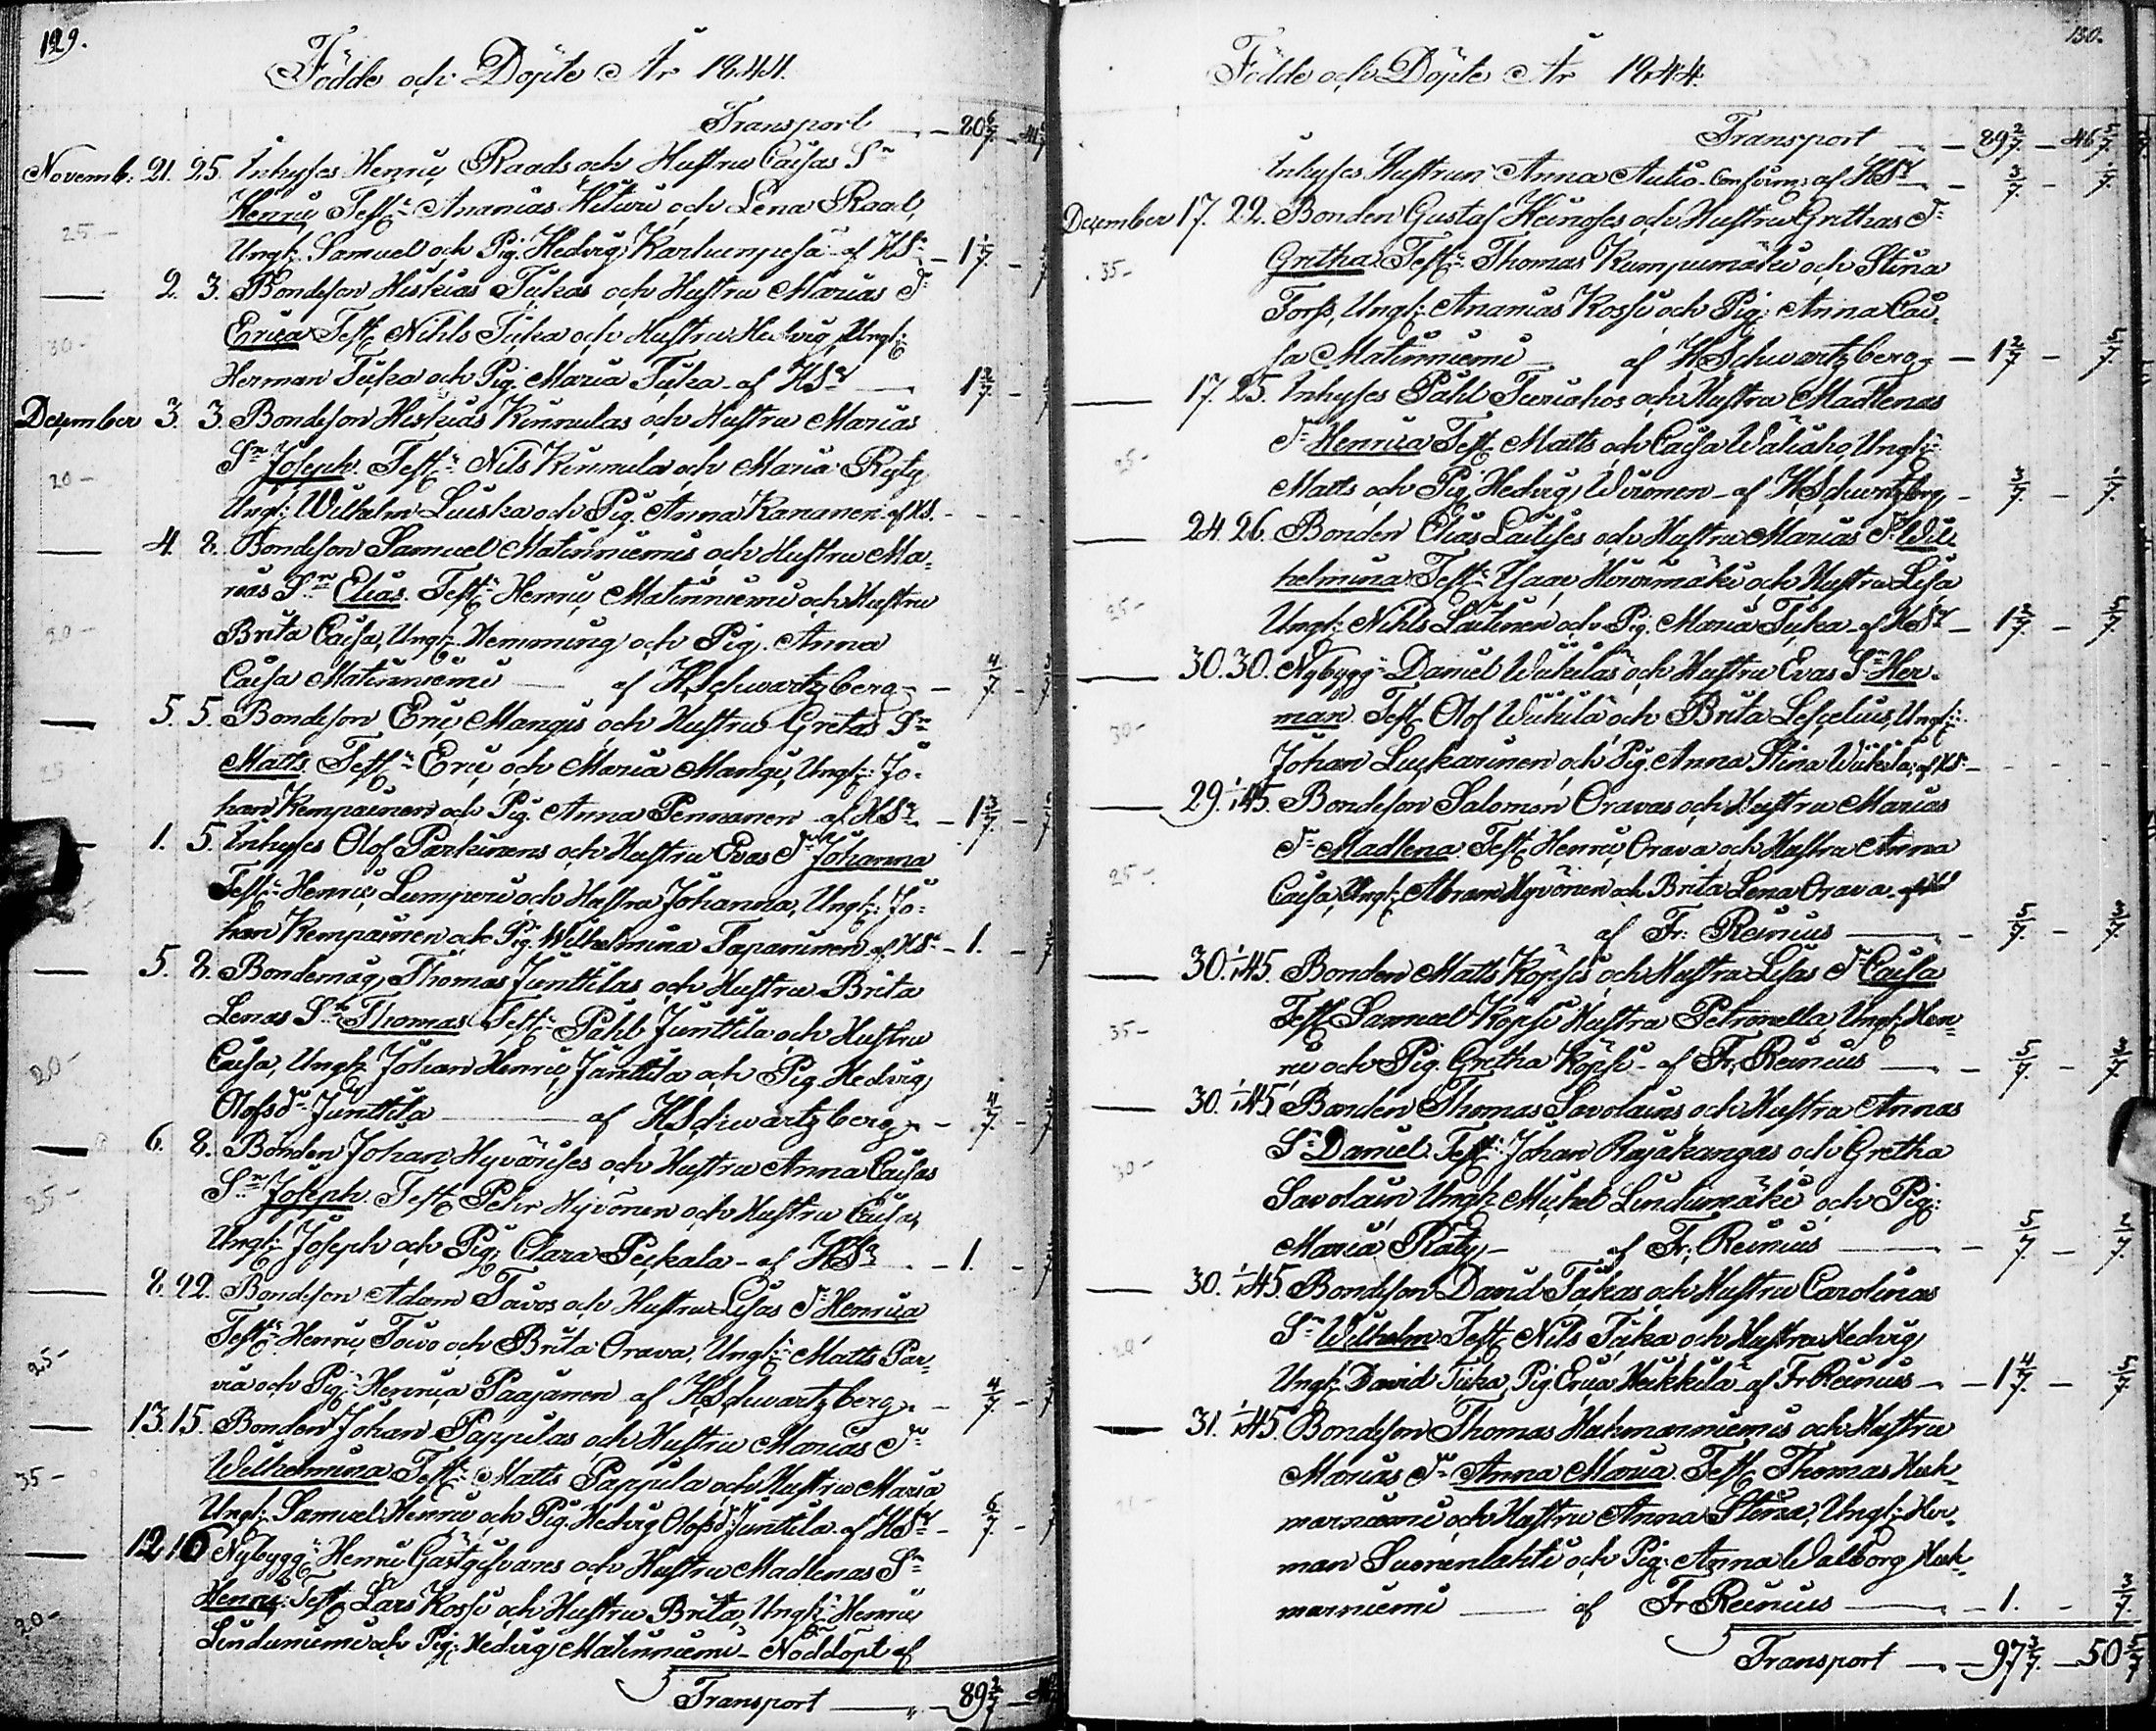 129.
Födde och Döpte År 1844.
Transport — 80 6/7 —
Novemb. 21. 25. Inhyses Henric Raads och Hustru Caisas Sn
Henric Test: Ananias Hiltuin och Lena Raad,
25 — Ungk: Samuel och Pig: Hedvig Karhunpesä af HSz — 1 1/7 —
— 2. 3. Bondeson Hiskias Tickas och Hustru Marias Dr
Erica Test Nihls Ticka och Hustru Hedvig, Ungk:
30 — Herman Ticka och Pig: Maria Ticka af HSz — 1 2/7 —
December 3. 3. Bondeson Hiskias Kinnulas och Hustru Marias
Sn Joseph. Test: Nils Kinnula och Maria Ryty
20 — Ungk: Wilhelm Luiska och Pig. Anna Kananen af HS.
— 4. 8. Bondeson Samuel Matinniemis och Hustru Ma-
rias Sn Elias. Test: Henric Matinniemi och Hustru
20 — Brita Caisa, Ungk: Hemming och Pig. Anna
Caisa Matinniemi — af HSchwartzberg — 4/7 —
— 5. 5. Bondeson Eric Mangis och Hustru Gretas Sn
25 Matts. Test: Eric och Maria Mangi, Ungk: Jo-
han Kempainen och Pig. Anna Pennanen af HSz — 1 2/7 —
1. 5. Inhyses Olof Parkinens och Hustru Evas Dr Johanna
Test: Henric Lumperoi och Hustru Johanna, Ungk: Jo-
han Kempainen och Pig. Wilhelmina Tapaninen af HSz — 1. —
— 5. 8. Bondemåg Thomas Junttilas och Hustru Brita
Lenas Sn Thomas Test: Påhl Junttila och Hustru
20 — Caisa, Ungk: Johan Henric Junttila och Pig. Hedvig
Olofsdr Junttila — af HSchwartzberg — 4/7 —
— 6. 8. Bonden Johan Hyvärises och Hustru Anna Caisas
25 — Sn Joseph. Test Pehr Hyvönen och Hustru Caisa,
Ungk: Joseph och Pig: Clara Peckala — af HSz — 1. —
— 8. 22. Bondeson Adam Toivos och Hustru Lisas Dr Henrica
Test: Henric Toivo och Brita Orava, Ungk: Matts Par-
25 — via och Pig: Henrica Paajanen af HSchwartzberg — 4/7 —
— 13. 15. Bonden Johan Pappilas och Hustru Marias Dr
35 — Wilhelmina Test: Matts Pappila och Hustru Maria
Ungk: Samuel Henric och Pig: Hedvig Olofsdr Juntila af HSz — 6/7 —
— 12 16 Nybygg: Henric Gästgifvares och Hustru Madlenas Sn
Henric. Test Lars Kossi och Hustru Brita, Ungk: Henric
20 — Linduniemi och Pig: Hedvig Matinniemi — Nöddöpt af
Transport — 89 2/7 —
130.
Födde och Döpte År 1844.
Transport — 89 2/7 — 46
Inhyses Hustrun Anna Autio. Confirm: af HSz — 3/7 —
December 17. 22. Bonden Gustaf Heinoses och Hustru Grethas Dr
35 — Gretha. Test: Thomas Kumpumäki och Stina
Forss, Ungk: Ananias Kossi och Pig: Anna Cai-
sa Matinniemi — af HSchwartzberg — 1 2/7 —
— 17. 25. Inhyses Påhl Turiahos och Hustru Madlenas
25 — Dr Henrica Test Matts och Caisa Waliaho, Ungk:
Matts och Pig: Hedvig Wironen — af HSchwrtzbrg — 3/7 —
— 24. 26. Bonden Elias Laitises och Hustru Marias Dr Wil-
helmina Test: Isaac Hirvimäki och Hustru Lisa
25 — Ungk: Nihls Laitinen och Pig. Maria Ticka af HSz — 1 2/7 —
— 30. 30. Nybygg: Daniel Wiikilas och Hustru Evas Sn Her-
30 — man. Test Olof Wiikilä och Brita Lescelius, Ungk:
Johan Luckarinen och Pig. Anna Stina Wiikilä, af HS —
— 29. 1/1 45. Bondeson Salomon Oravas och Hustru Marias
Dr Madlena. Test Henric Orava och Hustru Anna
25 — Caisa, Ungk: Abram Hyvönen och Brita Lena Orava
af Fr: Reinius — 5/7 —
— 30. 1/1 45. Bonden Matts Köpsis och Hustru Lisas Dr Caisa
35 — Test Samuel Köpsi Hustru Petronella, Ungk: Hen-
ric och Pig. Gretha Köpsi — af Fr: Reinius — 5/7 —
— 30. 1/1 45 Bonden Thomas Savolains och Hustru Annas
30 — Sn Daniel. Test: Johan Rajakangas och Gretha
Savolain Ungk: Michel Lindumäki och Pig:
Maria Räty — af Fr: Reinius — 5/7 —
— 30. 1/1 45. Bondeson David Tickas och Hustru Carolinas
20 — Sn Wilhelm Test Nils Ticka och Hustru Hedvig
Ungk: David Ticka, Pig. Erica Heikkilä af Fr Reinius — 1 4/7 —
— 31. 1/1 45. Bondeson Thomas Hakmanniemis och Hustru
Marias Dr Anna Maria. Test Thomas Hak-
manniemi och Hustru Anna Stina, Ungk: Her-
man Suonenlahti och Pig: Anna Walborg Hak-
manniemi — af Fr Reinius — 1. —
Transport — 97 — 50